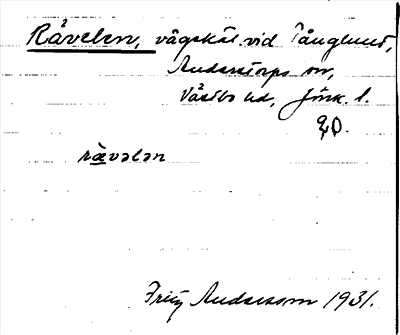 Råvelen, vägskäl vid Tånglund,
Anderstorps sn,
Västbo hd, Jönk. l.
rävələn
Fritz Andersson 1931.